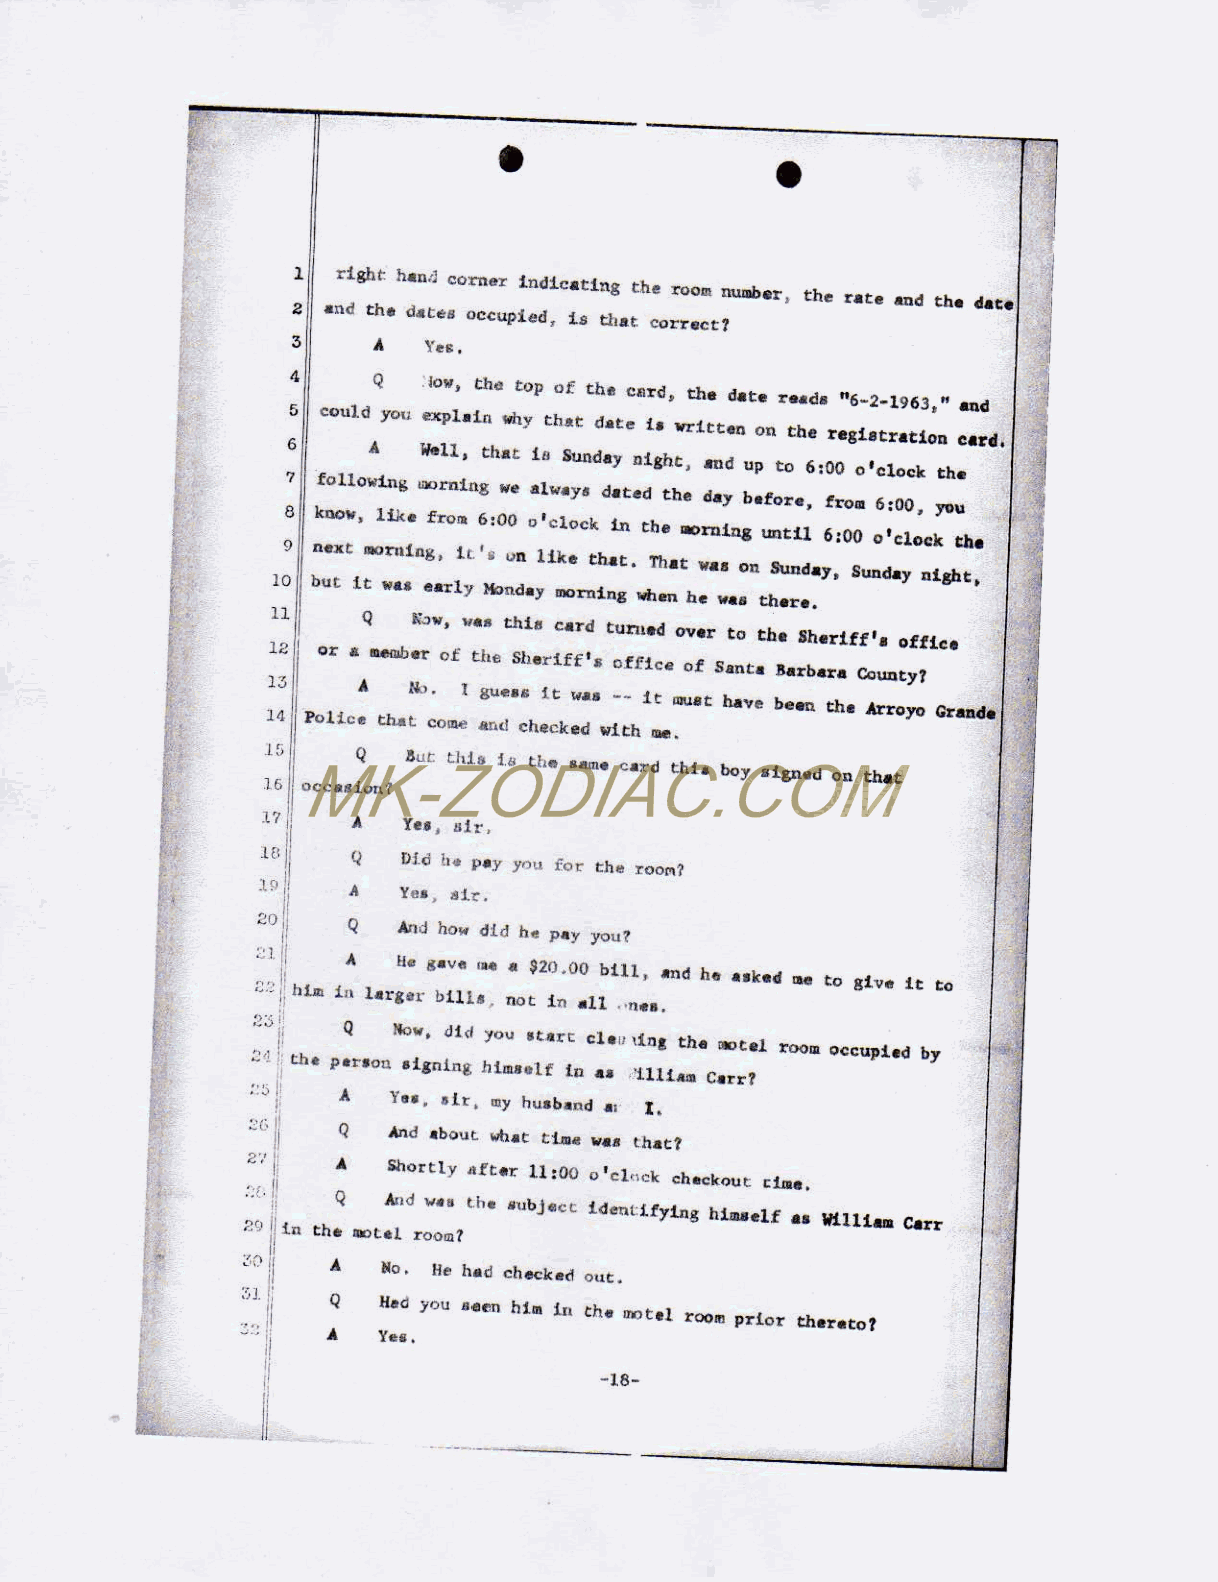 1 right hand corner indicating the room number, the rate and the date
2 and the dates occupied, is that correct?
3 A Yes.
4 Q Now, the top of the card, the date reads "6-2-1963," and
5 could you explain why that date is written on the registration card.
6 A Well, that is Sunday night, and up to 6:00 o'clock the
7 following morning we always dated the day before, from 6:00, you
8 know, like from 6:00 o'clock in the morning until 6:00 o'clock the
9 next morning, it's on like that. That was on Sunday, Sunday night,
10 but it was early Monday morning when he was there.
11 Q Now, was this card turned over to the Sheriff's office
12 or a member of the Sheriff's office of Santa Barbara County?
13 A No. I guess it was -- it must have been the Arroyo Grande
14 Police that come and checked with me.
15 Q But this is the same card this boy signed on that
16 occasion?
MK-ZODIAC.COM
17 A Yes, sir.
18 Q Did he pay you for the room?
19 A Yes, sir.
20 Q And how did he pay you?
21 A He gave me a $20.00 bill, and he asked me to give it to
22 him in larger bills, not in all ones.
23 Q Now, did you start cleaning the motel room occupied by
24 the person signing himself in as William Carr?
25 A Yes, sir, my husband and I.
26 Q And about what time was that?
27 A Shortly after 11:00 o'clock checkout time.
28 Q And was the subject identifying himself as William Carr
29 in the motel room?
30 A No. He had checked out.
31 Q Had you seen him in the motel room prior thereto?
32 A Yes.
-18-